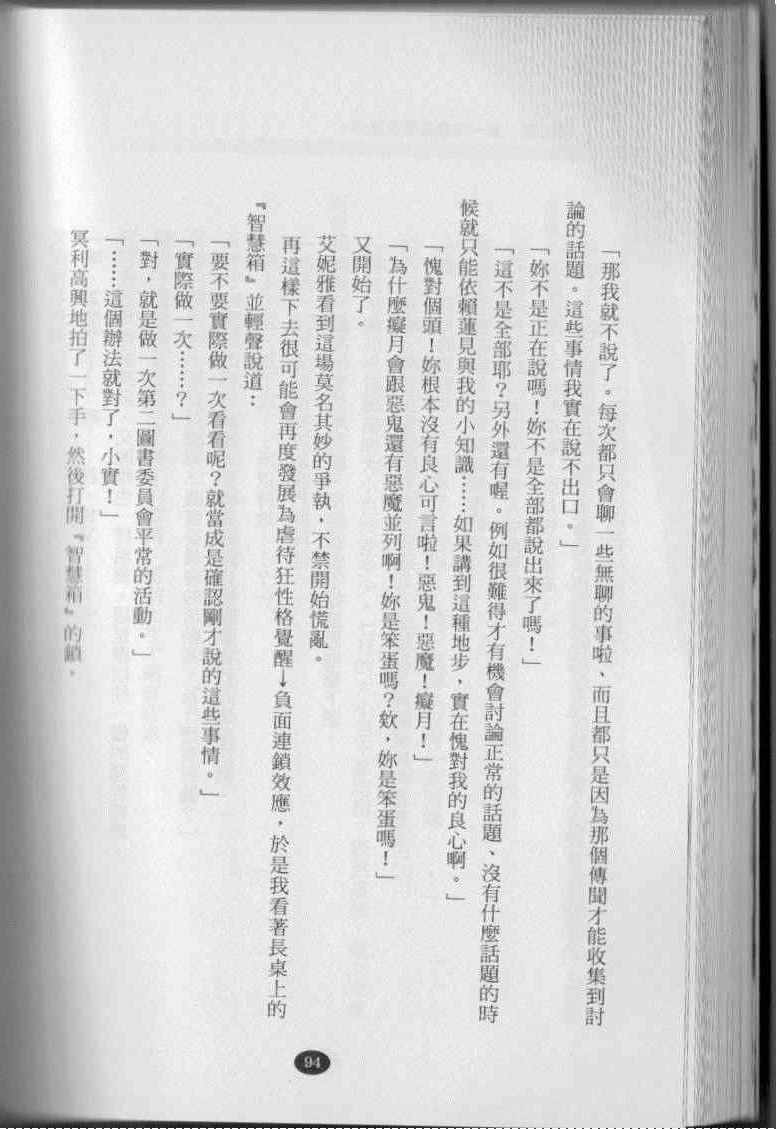 「那我就不說了。每次都只會聊一些無聊的事啦、而且都只是因為那個傳聞才能收集到討
論的話題。這些事情我實在說不出口。」
「妳不是正在說嗎！妳不是全部都說出來了嗎！」
「這不是全部耶？另外還有喔。例如很難得才有機會討論正常的話題、沒有什麼話題的時
候就只能依賴蓮見與我的小知識……如果講到這種地步，實在愧對我的良心啊。」
「愧對個頭！妳根本沒有良心可言啦！惡鬼！惡魔！癡月！」
「為什麼癡月會跟惡鬼還有惡魔並列啊！妳是笨蛋嗎？欸，妳是笨蛋嗎！」
又開始了。
艾妮雅看到這場莫名其妙的爭執，不禁開始慌亂。
再這樣下去很可能會再度發展為虐待狂性格覺醒→負面連鎖效應，於是我看著長桌上的
『智慧箱』並輕聲說道：
「要不要實際做一次看看呢？就當成是確認剛才說的這些事情。」
「實際做一次……？」
「對，就是做一次第二圖書委員會平常的活動。」
「……這個辦法就對了，小實！」
冥利高興地拍了一下手，然後打開『智慧箱』的鎖。
94